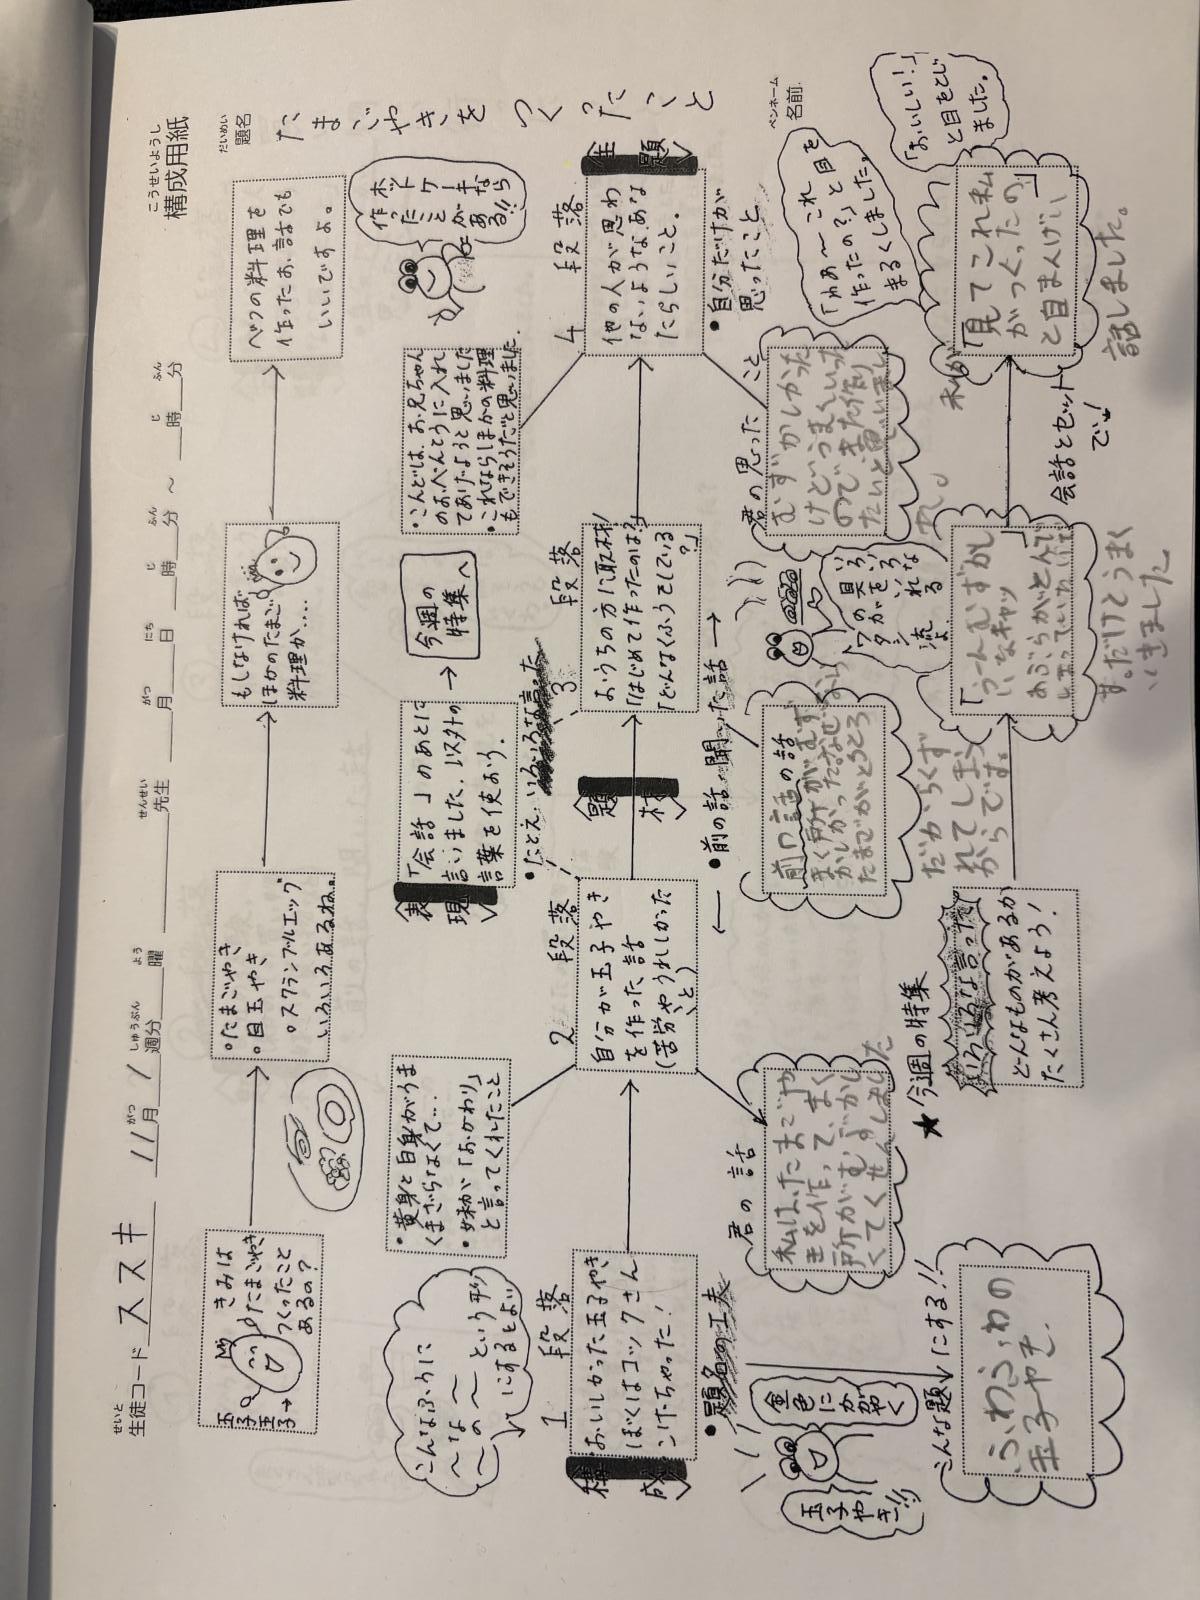 こうせいようし
構成用紙
せいと
生徒コード ススキ 11月 1週分 曜 先生 月 日 時 分 〜 時 分
がつ しゅうぶん よう せんせい がつ にち じ ふん じ ふん
だいめい
題名
たまごやきをつくったこと
ペンネーム
名前
きみは
たまごやき
つくったこと
あるの?
玉子→
◦たまごやき
◦目玉やき
◦スクランブルエッグ
いろいろあるね。
もしなければ
ほかのたまご
料理か…。
べつの料理を
作ったお話でも
いいですよ。
ホットケーキなら
作ったことが
ある!!
こんなふうに
〜な〜〜
〜の〜〜という形
にするとよい
・黄身と白身がうま
くまざらなくて…
・妹が「おかわり」
と言ってくれたこと
表現
「会話」のあとに
言いました、以外の
言葉を使おう。
・たとえ
今週の
特集へ
・こんどは、お兄ちゃん
のおべんとうに入れ
てあげようと思いました
・これならほかの料理
もできそうだと思いました
構成
1 段落
おいしかった玉子やき
ぼくはコックさん
こげちゃった!
2 段落
自分が玉子やき
を作った話
(苦労やうれしかった
こと)
題材
3 段落
おうちの方に取材!
「はじめて作ったのは?」
「どんなくふうをしている
?」
主題
4 段落
他の人が思わ
ないようなあな
たらしいこと。
・題名の工夫
玉子やき!!
金色にかがやく
こんな題にする!!
ふわふわの
玉子やき。
君の話
私は、たまごや
きを作って、まく
所がむずかし
くてくせんしました
・前の話、聞いた話
前の話の話
まく所がむず
かしかった、なぜ
たまごがとろとろ
だからくず
れてしまう
からです。
ワタシ流よ
・自分だけが
思ったこと
君の思ったこと
むずかしかった
けどうまくいった
のでまた作り
たいと思いまし
た。
★今週の特集
いろいろな言った
どんなものがあるか
たくさん考えよう!
「うーんむずかし
いなキャッ
す。だけどうまく
いきました
会話とセット
でね!
私が
「見てこれ私
がつくったの」
と自まんげに
話しました。
「わあ〜これ
作ったの?」と目を
まるくしました。
「おいしい!」
と目をとじ
ました。